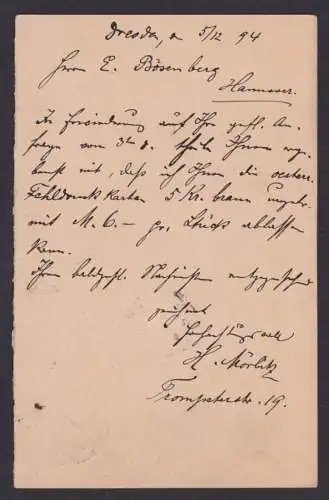 Dresden, n 5/12 94
Herrn E. Bösenberg
Hannover.
In Erwiderung auf Ihre gefl. An-
frage vom 3ten d. theile Ihnen erge-
benst mit, daß ich Ihnen die oesterr.
Fehldruck Karten 5 Kr. braun ungebr.
mit M. 6.– pr. Stück ablassen
kann.
Ihren baldgefl. Nachrichten entgegensehend
zeichnet
Hochachtungsvoll
H. Mörbitz
Trompeterstr. 19.